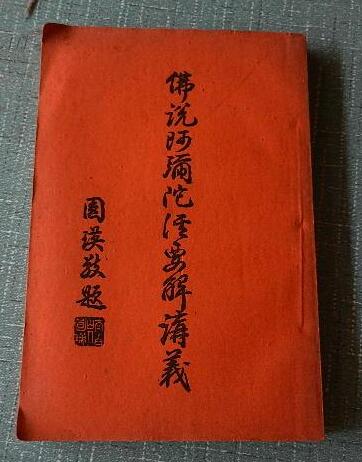 佛說阿彌陀經要解講義
圓瑛敬題